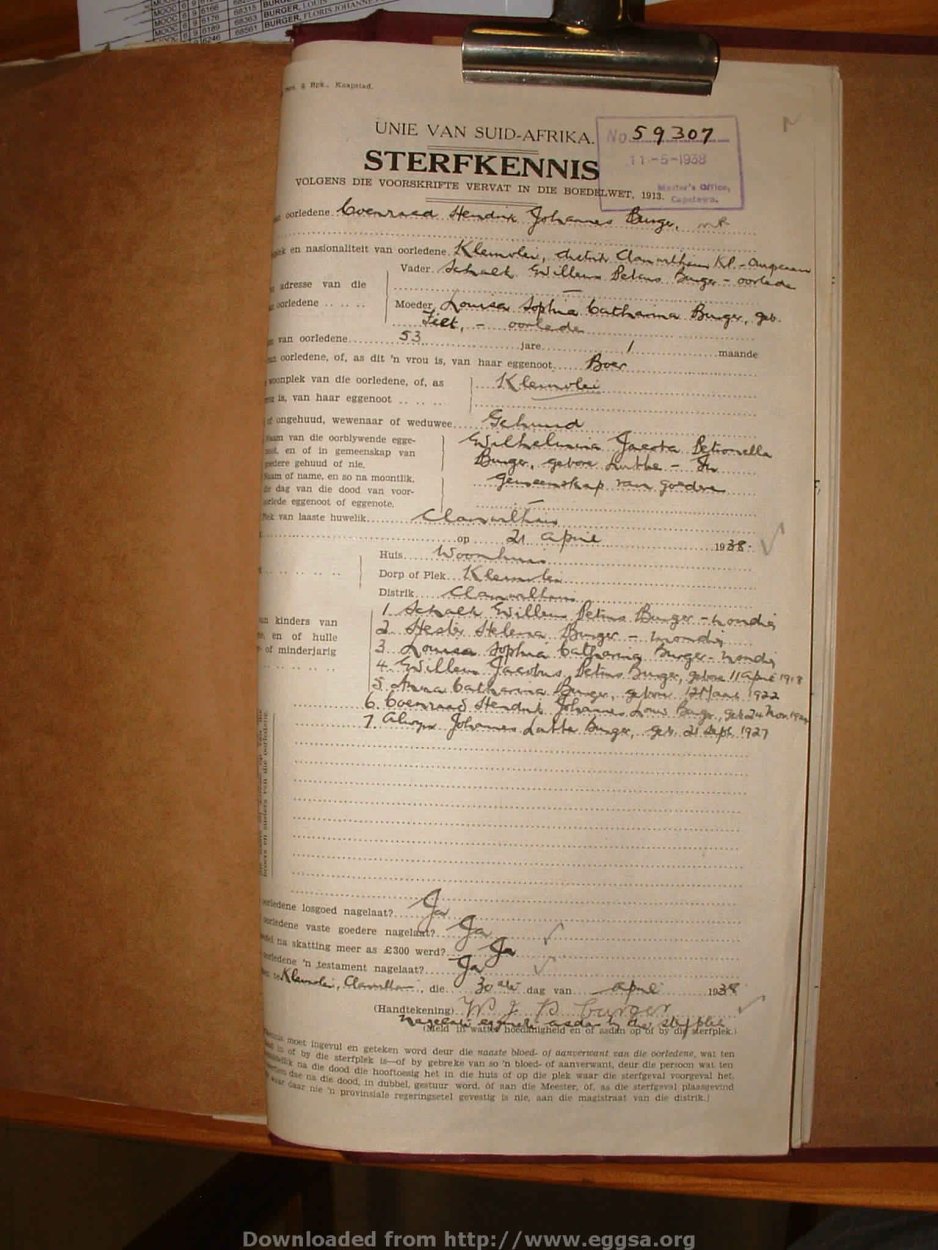 MOOC 6 9 6166
MOOC 6 9 6176 68363 BURGER, LOUIS
6189 68561 BURGER, FLORIS JOHANNE
6246
Bpk., Kaapstad.
UNIE VAN SUID-AFRIKA.
No 59307
11-5-1938
Master's Office,
Capetown.
STERFKENNIS
VOLGENS DIE VOORSKRIFTE VERVAT IN DIE BOEDELWET, 1913.
oorledene Coenraad Hendrik Johannes Burger,
en nasionaliteit van oorledene Kleinvlei, distrik Clanwilliam K.P. - Europeaan
Vader Schalk Willem Petrus Burger - oorlede
adresse van die
oorledene
Moeder Louisa Sophia Catharina Burger, geb.
- oorlede
van oorledene 53 jare 1 maande
oorledene, of, as dit 'n vrou is, van haar eggenoot Boer
woonplek van die oorledene, of, as Kleinvlei
is, van haar eggenoot
of ongehuud, wewenaar of weduwee Gehuud
Naam van die oorblywende egge- Wilhelmina Jacoba Petronella
noot, en of in gemeenskap van Burger, gebore Lubbe - In
goedere gehuud of nie. gemeenskap van goedere
Naam of name, en so na moontlik,
die dag van die dood van voor-
oorlede eggenoot of eggenote. -
Plek van laaste huwelik Clanwilliam
op 21 April 1938
Huis Woonhuis
Dorp of Plek Kleinvlei
Distrik Clanwilliam
kinders van 1. Schalk Willem Petrus Burger - mondig
en of hulle 2. Hester Helena Burger - mondig
of minderjarig 3. Louisa Sophia Catharina Burger - mondig
4. Willem Jacobus Petrus Burger, gebore 11 April 1918
5. Anna Catharina Burger, gebore 1922
6. Coenraad Hendrik Johannes Louw Burger, geb. 24 Nov
7. Alwyn Johannes Lubbe Burger, geb. 21 Sept. 1927
oorledene losgoed nagelaat? Ja
oorledene vaste goedere nagelaat? Ja
na skatting meer as £300 werd? Ja
oorledene 'n testament nagelaat? Ja
te Kleinvlei, Clanwilliam, die 30ste dag van April 1938
(Handtekening) W J P Burger
Nagelate eggenote aldaar by die sterfbed
(Meld in watter hoedanigheid en of aldan op of by die sterfplek)
moet ingevul en geteken word deur die naaste bloed- of aanverwant van die oorledene, wat ten
of by die sterfplek is—of by gebreke van so 'n bloed- of aanverwant, deur die persoon wat ten
na die dood die hooftoesig het in die huis of op die plek waar die sterfgeval voorgeval het,
dae na die dood, in dubbel, gestuur word, óf aan die Meester, of, as die sterfgeval plaasgevind
waar daar nie 'n provinsiale regeringsetel gevestig is nie, aan die magistraat van die distrik.]
Downloaded from http://www.eggsa.org